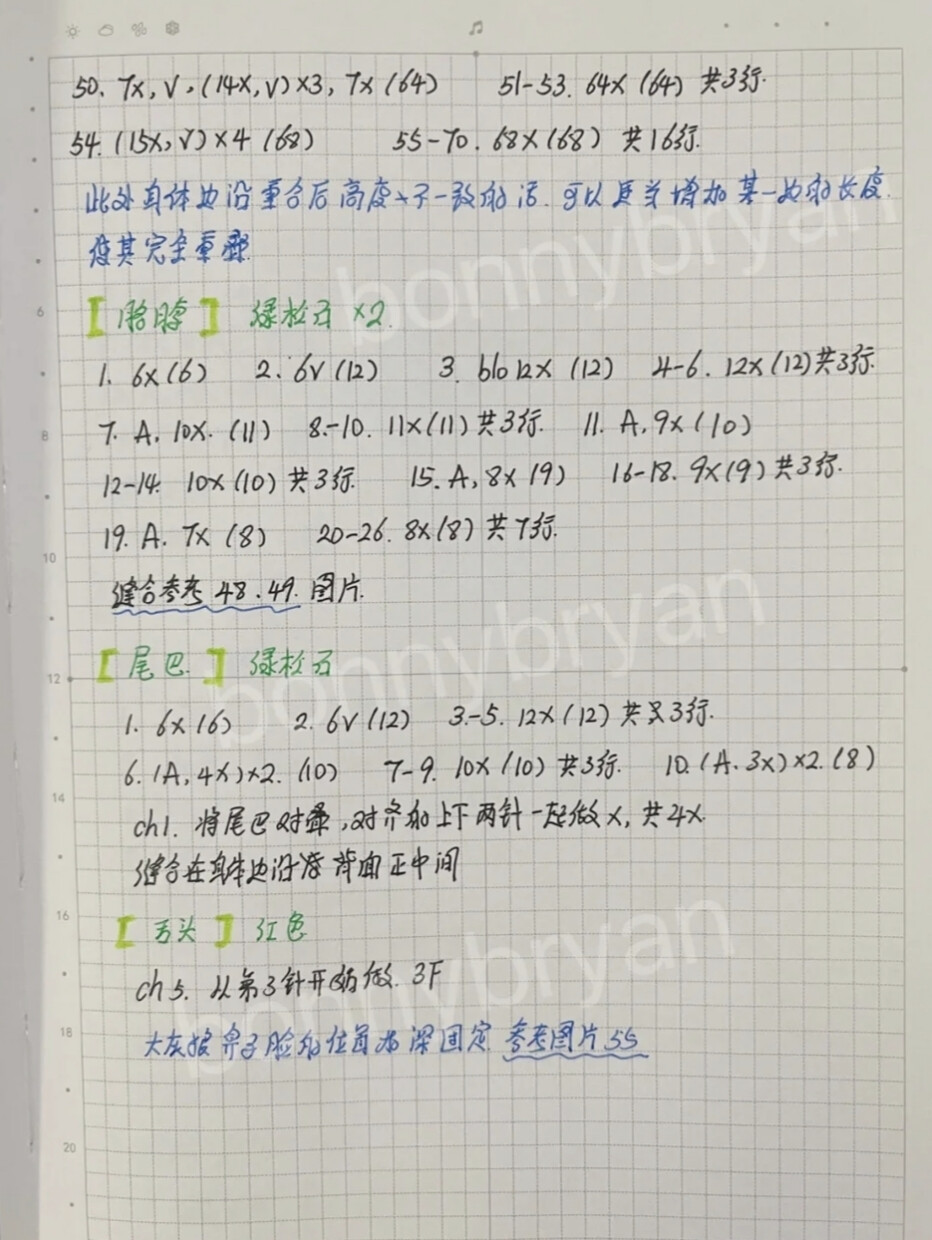 50. 7X, V, (14X, V)×3, 7X (64) 51-53. 64X (64) 共3行.
54. (15X, V)×4 (68) 55-70. 68X (68) 共16行.
此处身体边沿重合后高度 不一致的话. 可以更当增加某一边的长度.
使其完全重
【胳膊】 绿松石 ×2.
1. 6X (6) 2. 6V (12) 3. blo 12X (12) 4-6. 12X (12) 共3行.
7. A, 10X. (11) 8.-10. 11X (11) 共3行. 11. A, 9X (10)
12-14. 10X (10) 共3行. 15. A, 8X (9) 16-18. 9X (9) 共3行.
19. A. 7X (8) 20-26. 8X (8) 共7行.
缝合参考 48.49. 图片.
【尾巴】 绿松石
1. 6X (6) 2. 6V (12) 3.-5. 12X (12) 共3行.
6. (A, 4X)×2. (10) 7-9. 10X (10) 共3行. 10. (A. 3X)×2. (8)
ch1. 将尾巴对叠, 对齐的上下两针一起做X, 共4X.
缝合在身体边沿 背面正中间
【舌头】 红色
ch5. 从第3针开始做. 3F
大灰狼鼻子脸的位置 深固定 参考图片55
bonnybryan
bonnybryan
bonnybryan
6
8
10
12
14
16
18
20